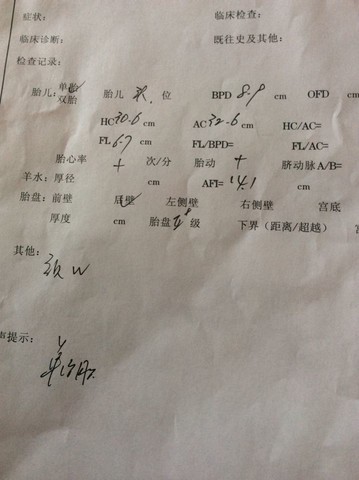 症状: 临床检查:
临床诊断: 既往史及其他:
检查记录:
胎儿: 单胎 双胎 胎儿 头 位 BPD 8.9 cm OFD cm
HC 30.6 cm AC 32.6 cm HC/AC=
FL 6.7 cm FL/BPD= FL/AC=
胎心率 + 次/分 胎动 + 脐动脉A/B=
羊水: 厚径 cm AFI= 14.1 cm
胎盘: 前壁 后壁 左侧壁 右侧壁 宫底
厚度 cm 胎盘 级 下界 (距离/超越)
其他:
W
声提示: